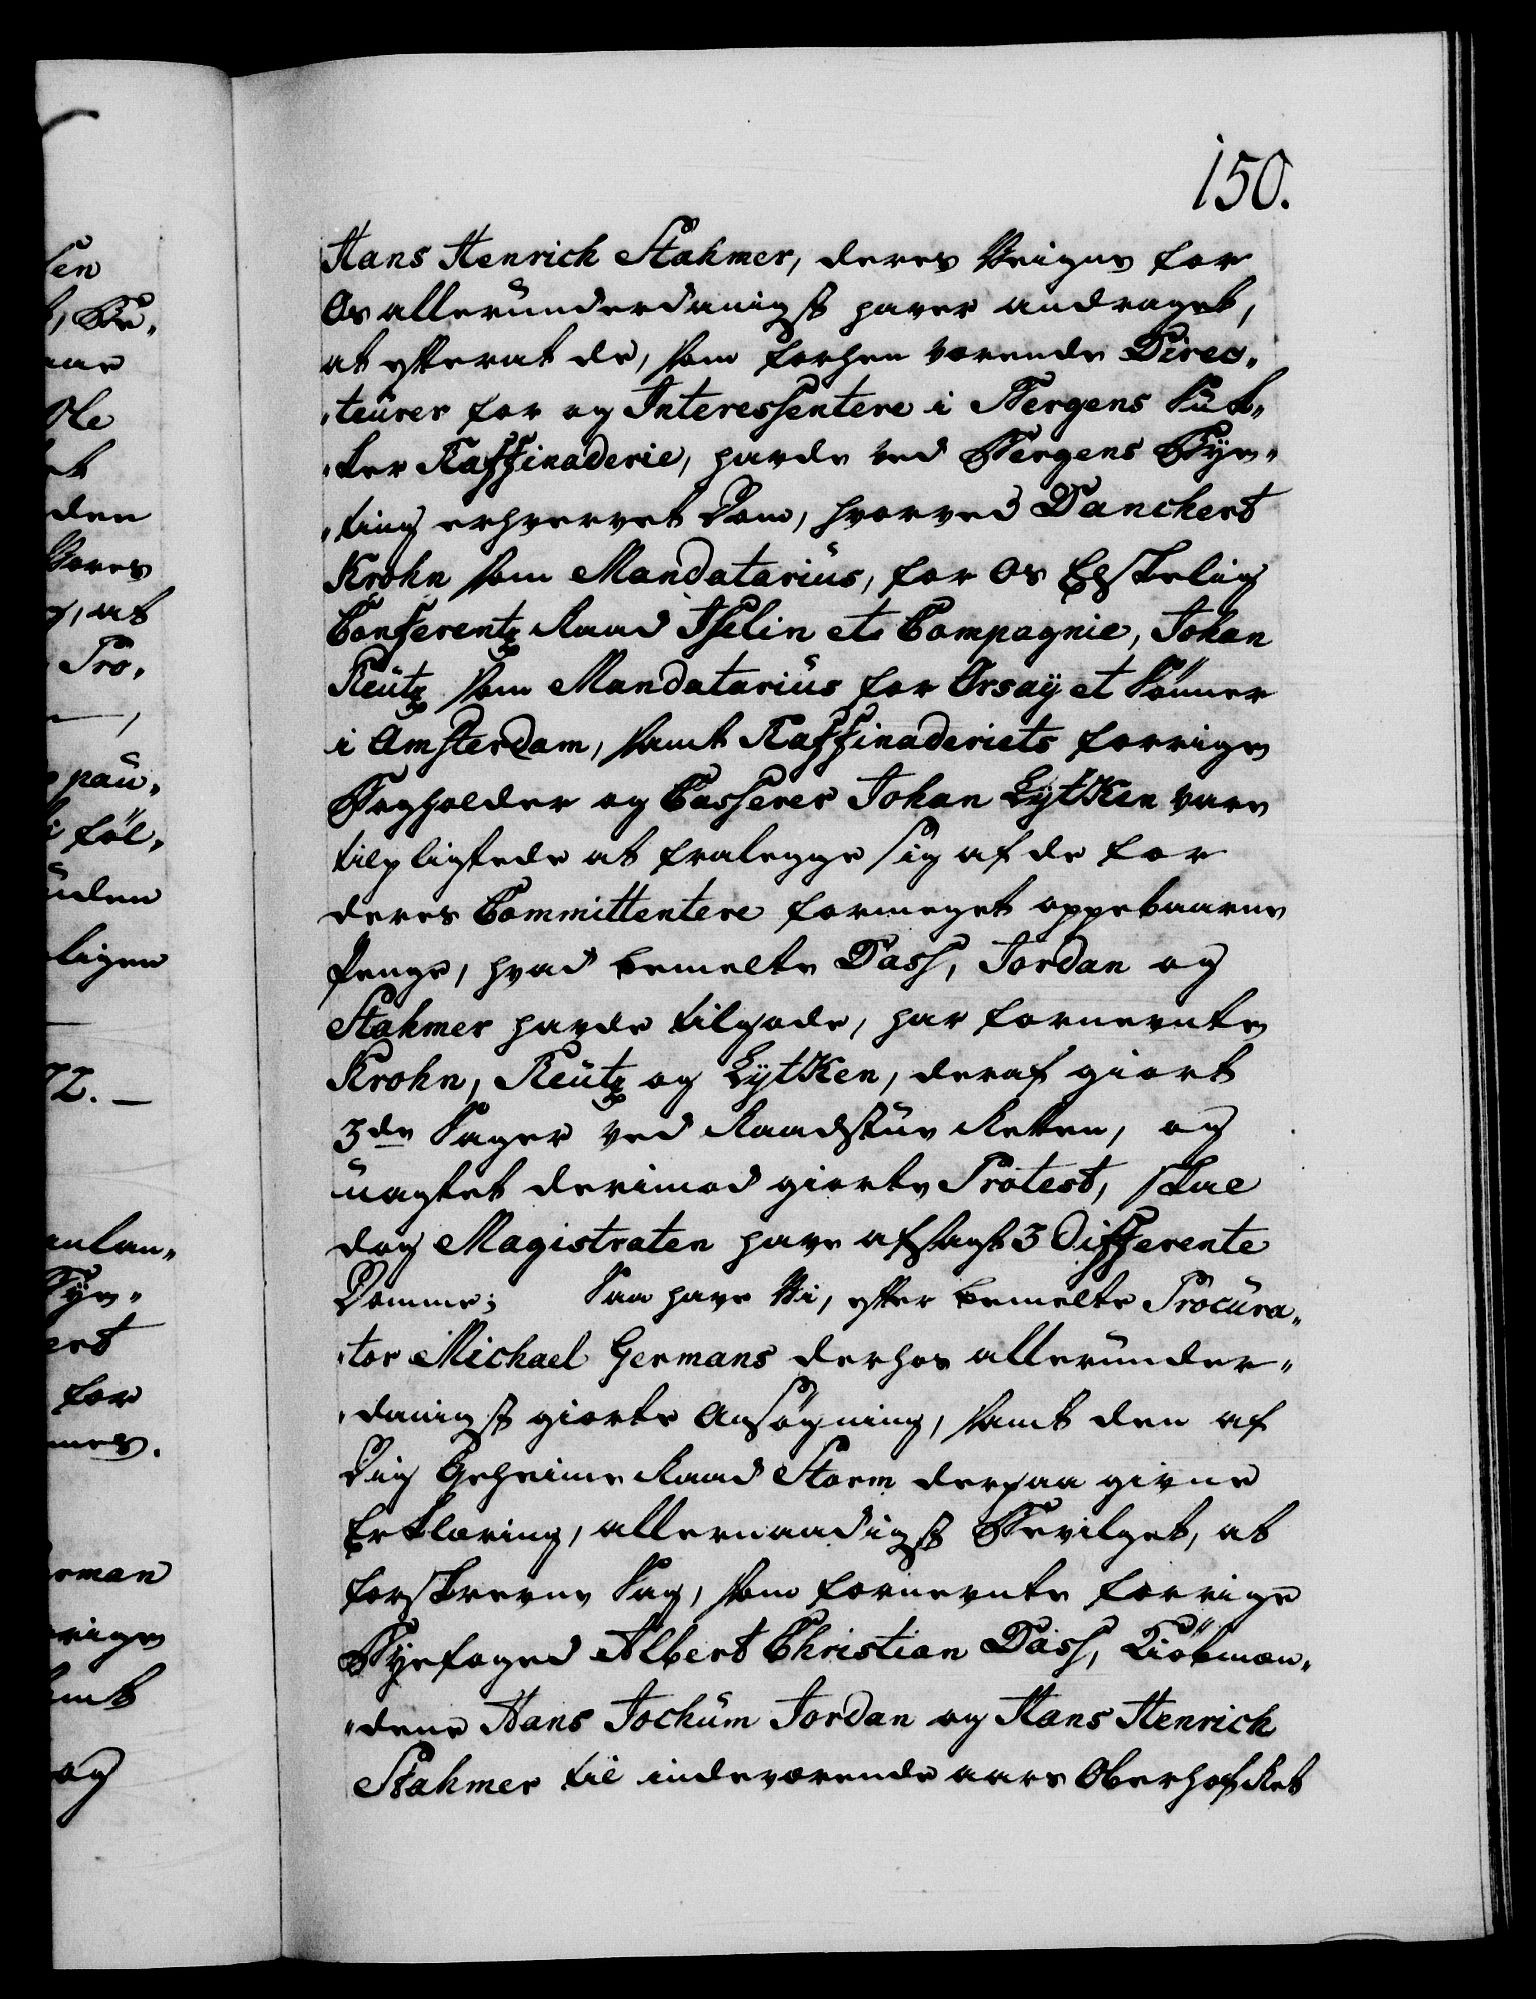 150.
Hans Henrich Stahmer, deres Veigne for
Os allerunderdanigst haver andraget,
at efterat de, som forhen værende Direc,,
,,teurer for og Interessentere i Bergens Suk,,
,,ker Raffinaderie, havde ved Bergens Bye,,
,,ting erhvervet Dom, hvorved Danchert
Krohn som Mandatarius, for Os Elskelig
Conferentz Raad Iselin et Compagnie, Johan
Reutz som Mandatarius for Orsaÿ et Sönner
i Amsterdam, samt Raffinaderiets forrige
Bogholder og Casserer Johan Lÿtken vare
tilpligtede at fralegge sig af de for
deres Committentere formeget oppebaarne
Penge, hvad bemelte Dass, Jordan og
Stahmer havde tilgode, har fornevnte
Krohn, Reutz og Lÿtken, deraf giort
3de Sager ved Raadstue Retten, og
uagtet derimod giorte Protest, skal
dog Magistraten have afsagt 3 Differente
Domme; Saa have Vi, efter bemelte Procura,,
,,tor Michael Germans derhos allerunder,,
,,danigst giorte Ansøgning, samt den af
Dig Geheime Raad Storm derpaa givne
Erklæring, allernaadigst Bevilget, at
forskrevne Sag, som fornevnte forrige
Byefoged Albert Christian Dass, Kiöbmæn,,
,,dene Hans Jochum Jordan og Hans Henrich
Stahmer til indeværende aars Oberhof Ret
sen
den
Vores
at
Pro,
föl,
uden
ligen
72. —
Bye,,
ert
for
erman
rige
samt
og